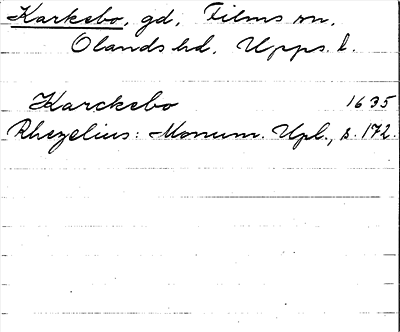 Karkebo, gd, Films sn,
Olands hd, Upps. l.
Karckebo 1635
Rhezelius: Monum. Upl., s. 172.